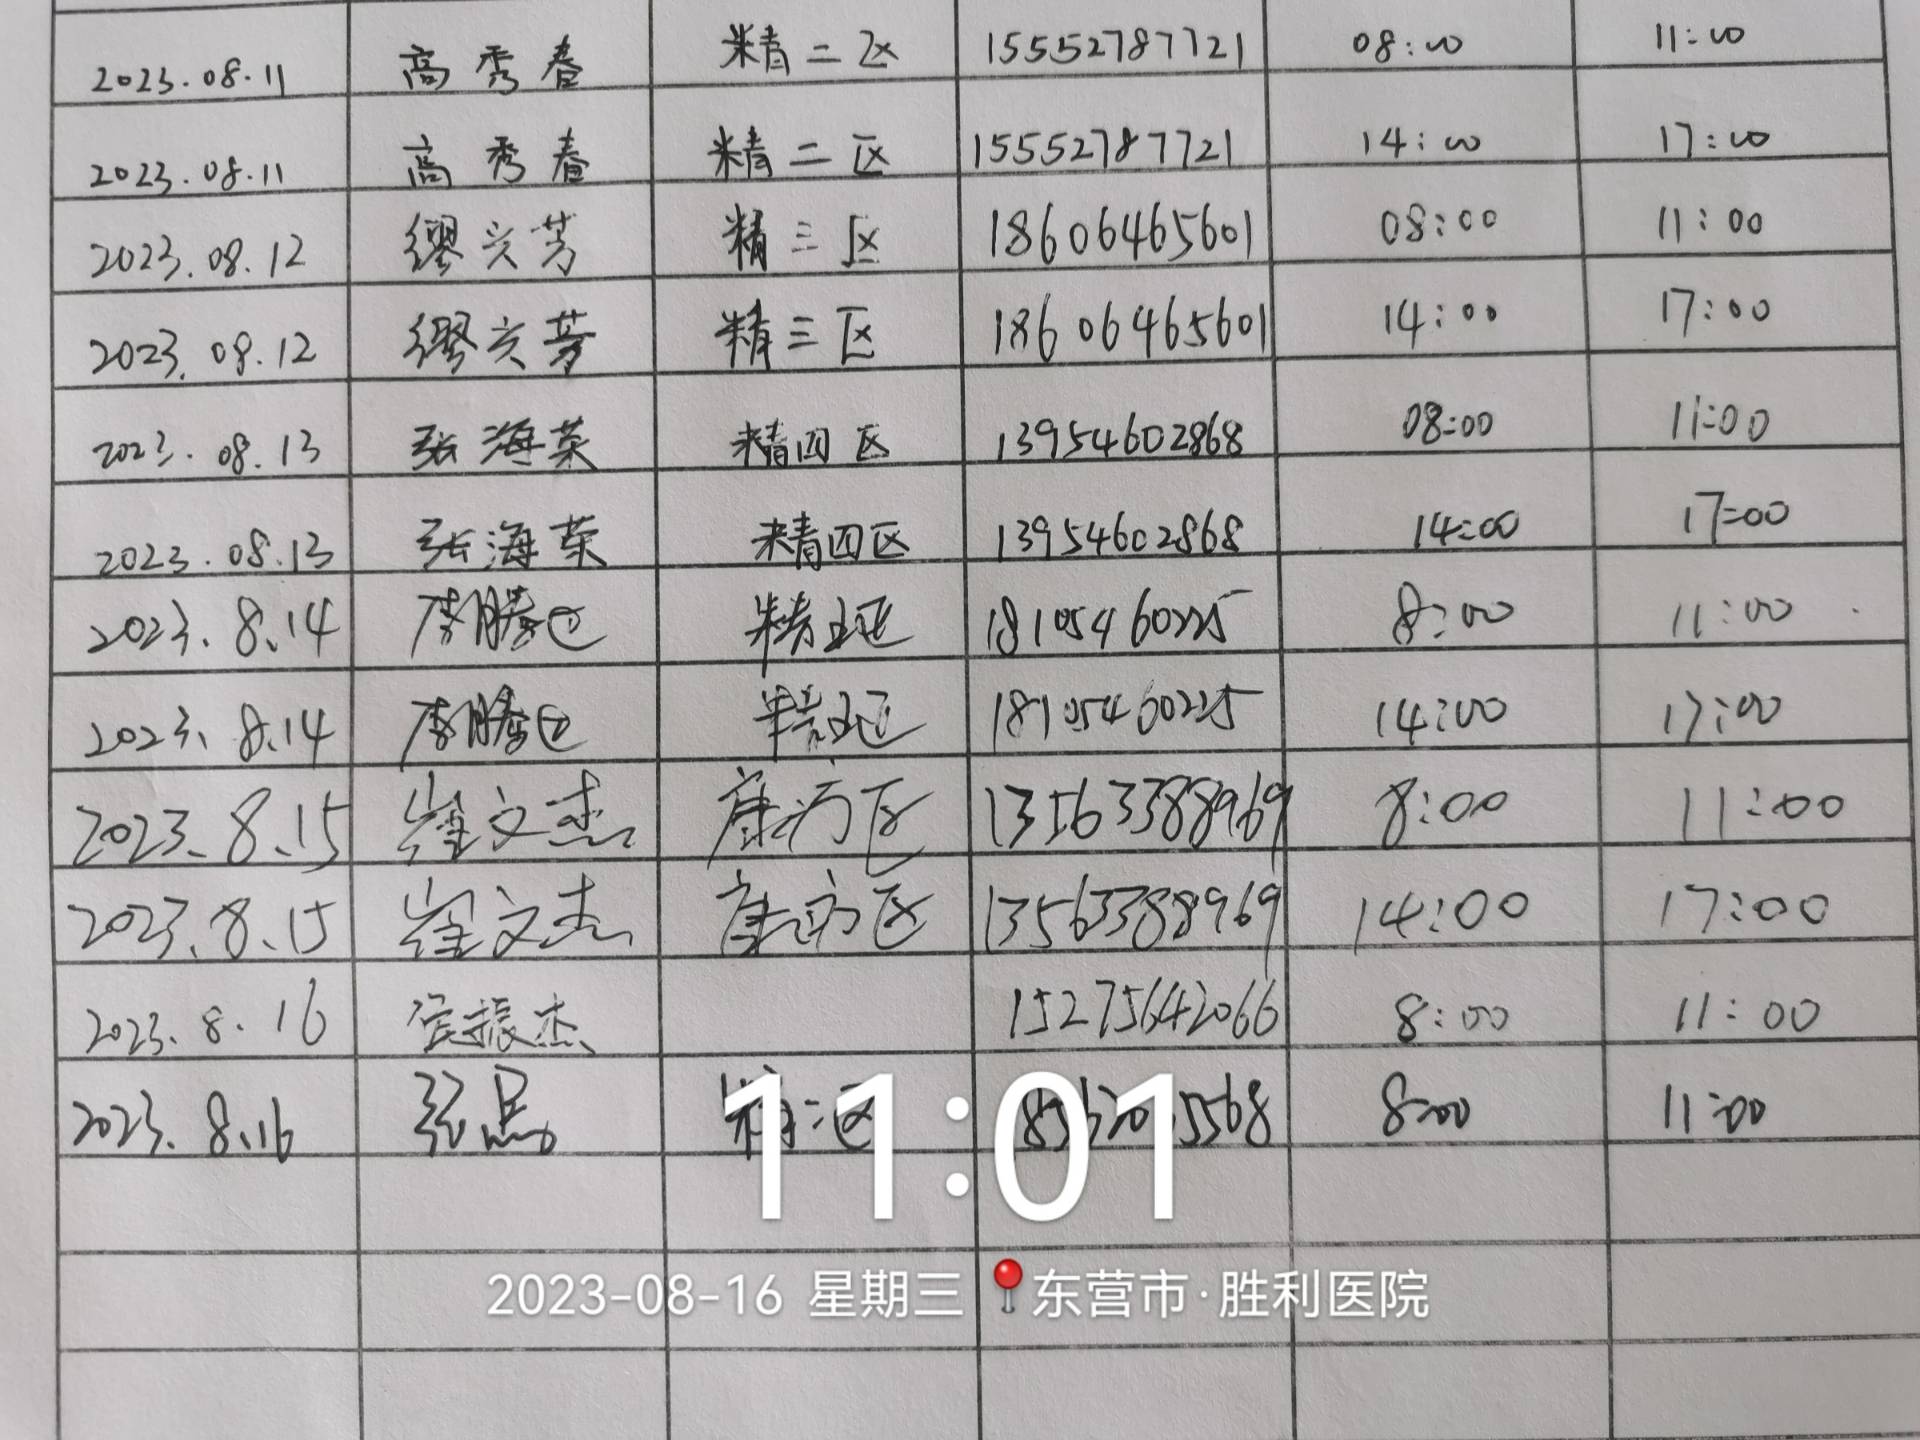 2023.08.11 高秀春 精二区 15552787721 08:00 11:00
2023.08.11 高秀春 精二区 15552787721 14:00 17:00
2023.08.12 缪兴芳 精三区 18606465601 08:00 11:00
2023.08.12 缪兴芳 精三区 18606465601 14:00 17:00
2023.08.13 张海荣 精四区 13954602868 08:00 11:00
2023.08.13 张海荣 精四区 13954602868 14:00 17:00
2023.8.14 李腾 精五区 18105460225 8:00 11:00
2023.8.14 李腾 精五区 18105460225 14:00 17:00
2023.8.15 崔文杰 康疗区 13563388969 8:00 11:00
2023.8.15 崔文杰 康疗区 13563388969 14:00 17:00
2023.8.16 振杰 15275642066 8:00 11:00
2023.8.16 精二区 8:00 11:00
11:01
2023-08-16 星期三 东营市·胜利医院